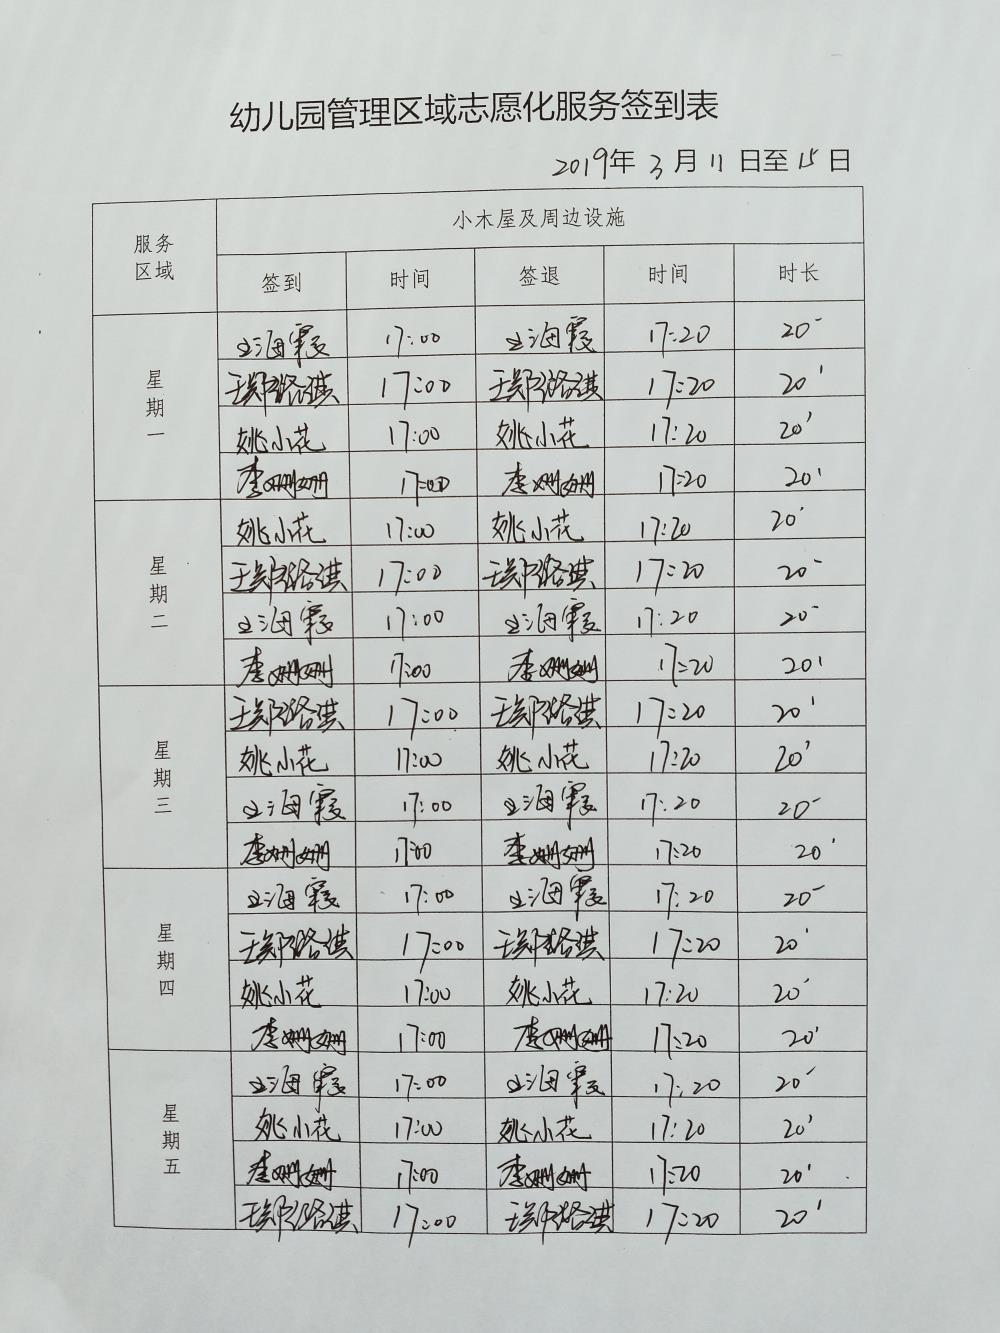 幼儿园管理区域志愿化服务签到表
2019年 3月 11 日至 15 日
服务区域 小木屋及周边设施
签到 时间 签退 时间 时长
星期一
海霞 17:00 海霞 17:20 20'
王郑璐琪 17:00 王郑璐琪 17:20 20'
姚小花 17:00 姚小花 17:20 20'
李姗姗 17:00 李姗姗 17:20 20'
星期二
姚小花 17:00 姚小花 17:20 20'
王郑璐琪 17:00 王郑璐琪 17:20 20'
海霞 17:00 海霞 17:20 20'
李姗姗 17:00 李姗姗 17:20 20'
星期三
王郑璐琪 17:00 王郑璐琪 17:20 20'
姚小花 17:00 姚小花 17:20 20'
海霞 17:00 海霞 17:20 20'
李姗姗 17:00 李姗姗 17:20 20'
星期四
海霞 17:00 海霞 17:20 20'
王郑璐琪 17:00 王郑璐琪 17:20 20'
姚小花 17:00 姚小花 17:20 20'
李姗姗 17:00 李姗姗 17:20 20'
星期五
海霞 17:00 海霞 17:20 20'
姚小花 17:00 姚小花 17:20 20'
李姗姗 17:00 李姗姗 17:20 20'
王郑璐琪 17:00 王郑璐琪 17:20 20'